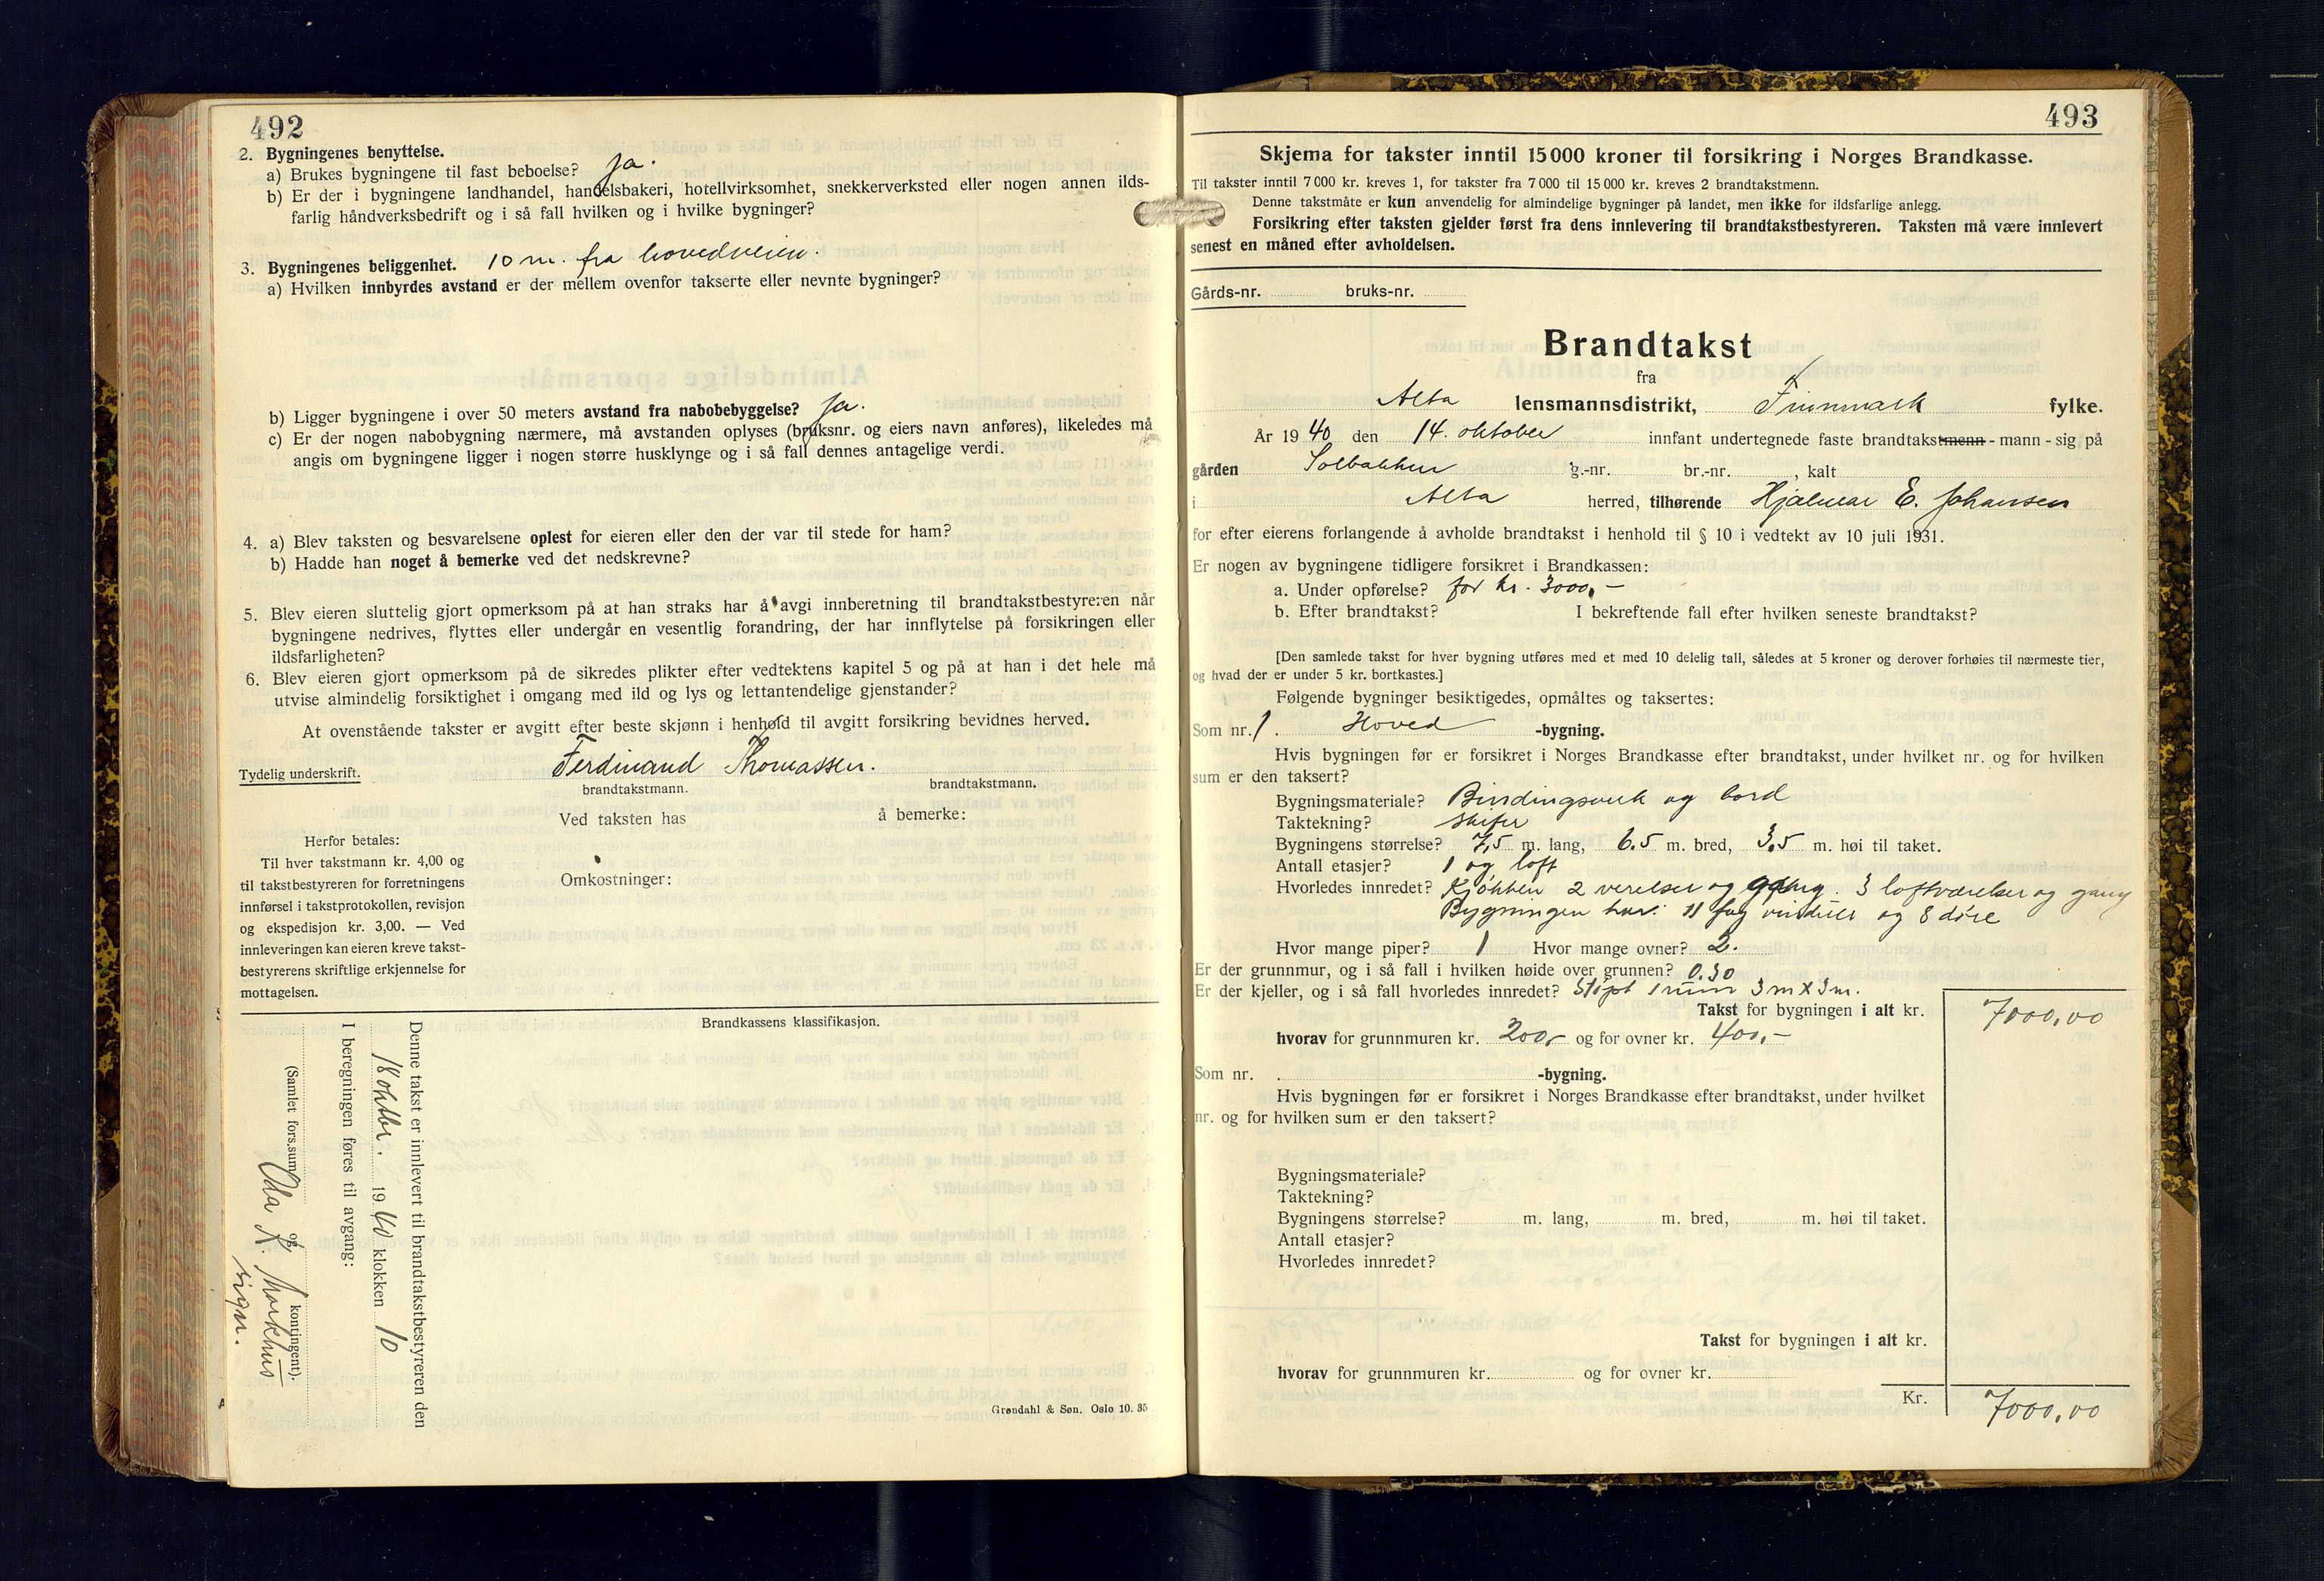 492
2. Bygningenes benyttelse.
a) Brukes bygningene til fast beboelse? Ja.
b) Er der i bygningene landhandel, handelsbakeri, hotellvirksomhet, snekkerverksted eller nogen annen ilds-
farlig håndverksbedrift og i så fall hvilken og i hvilke bygninger?
3. Bygningenes beliggenhet. 10 m. fra hovedveien.
a) Hvilken innbyrdes avstand er der mellem ovenfor takserte eller nevnte bygninger?
b) Ligger bygningene i over 50 meters avstand fra nabobebyggelse? Ja.
c) Er der nogen nabobygning nærmere, må avstanden oplyses (bruksnr. og eiers navn anføres), likeledes må
angis om bygningene ligger i nogen større husklynge og i så fall dennes antagelige verdi.
4. a) Blev taksten og besvarelsene oplest for eieren eller den der var til stede for ham?
b) Hadde han noget å bemerke ved det nedskrevne?
5. Blev eieren sluttelig gjort opmerksom på at han straks har å avgi innberetning til brandtakstbestyreren når
bygningene nedrives, flyttes eller undergår en vesentlig forandring, der har innflytelse på forsikringen eller
ildsfarligheten?
6. Blev eieren gjort opmerksom på de sikredes plikter efter vedtektens kapitel 5 og på at han i det hele må
utvise almindelig forsiktighet i omgang med ild og lys og lettantendelige gjenstander?
At ovenstående takster er avgitt efter beste skjønn i henhold til avgitt forsikring bevidnes herved.
Tydelig underskrift. Ferdinand Thomassen.
brandtakstmann. brandtakstmann.
Ved taksten has å bemerke:
Herfor betales:
Til hver takstmann kr. 4,00 og
til takstbestyreren for forretningens
innførsel i takstprotokollen, revisjon
og ekspedisjon kr. 3,00. — Ved
innleveringen kan eieren kreve takst-
bestyrerens skriftlige erkjennelse for
mottagelsen.
Omkostninger:
Brandkassens klassifikasjon.
Denne takst er innlevert til brandtakstbestyreren den
18 oktbr. 1940 klokken 10
I beregningen føres til avgang:
(Samlet fors.sum og kontingent).
Oda K. Markhus
sign.
Grøndahl & Søn. Oslo 10. 35
493
Skjema for takster inntil 15000 kroner til forsikring i Norges Brandkasse.
Til takster inntil 7000 kr. kreves 1, for takster fra 7000 til 15000 kr. kreves 2 brandtakstmenn.
Denne takstmåte er kun anvendelig for almindelige bygninger på landet, men ikke for ildsfarlige anlegg.
Forsikring efter taksten gjelder først fra dens innlevering til brandtakstbestyreren. Taksten må være innlevert
senest en måned efter avholdelsen.
Gårds-nr. bruks-nr.
Brandtakst
fra
Alta lensmannsdistrikt, Finnmark fylke.
År 1940 den 14. oktober innfant undertegnede faste brandtakstmenn - mann - sig på
gården Solbakken g.-nr. br.-nr. , kalt
i Alta herred, tilhørende Hjalmar E. Johansen
for efter eierens forlangende å avholde brandtakst i henhold til § 10 i vedtekt av 10 juli 1931.
Er nogen av bygningene tidligere forsikret i Brandkassen:
a. Under opførelse? for kr. 3000,-
b. Efter brandtakst? I bekreftende fall efter hvilken seneste brandtakst?
[Den samlede takst for hver bygning utføres med et med 10 delelig tall, således at 5 kroner og derover forhøies til nærmeste tier,
og hvad der er under 5 kr. bortkastes.]
Følgende bygninger besiktigedes, opmåltes og taksertes:
Som nr. 1. Hoved -bygning.
Hvis bygningen før er forsikret i Norges Brandkasse efter brandtakst, under hvilket nr. og for hvilken
sum er den taksert?
Bygningsmateriale? Bindingsverk og bord
Taktekning? Skifer
Bygningens størrelse? 7,5 m. lang, 6.5 m. bred, 3,5 m. høi til taket.
Antall etasjer? 1 og loft
Hvorledes innredet? Kjøkken 2 verelser og gang. 3 loftværelser og gang
Bygningen har: 11 fag vinduer og 8 døre
Hvor mange piper? 1 Hvor mange ovner? 2.
Er der grunnmur, og i så fall i hvilken høide over grunnen? 0.30
Er der kjeller, og i så fall hvorledes innredet? Støpt 1 rum 3 m x 3 m.
Takst for bygningen i alt kr. 7000,00
hvorav for grunnmuren kr. 200,- og for ovner kr. 400,-
Som nr. -bygning.
Hvis bygningen før er forsikret i Norges Brandkasse efter brandtakst, under hvilket
nr. og for hvilken sum er den taksert?
Bygningsmateriale?
Taktekning?
Bygningens størrelse? m. lang, m. bred, m. høi til taket.
Antall etasjer?
Hvorledes innredet?
Takst for bygningen i alt kr.
hvorav for grunnmuren kr. og for ovner kr.
Kr. 7000,00